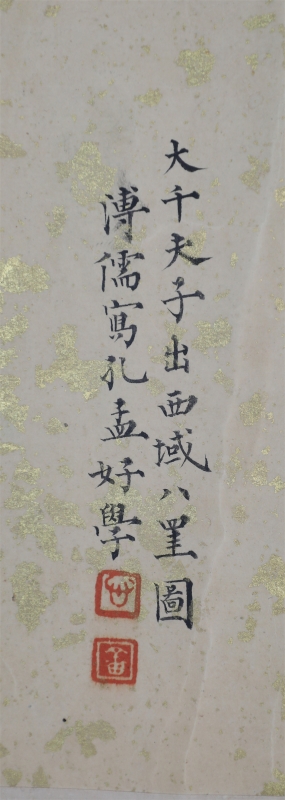 大千夫子出西域八圖
溥儒寫孔孟好學